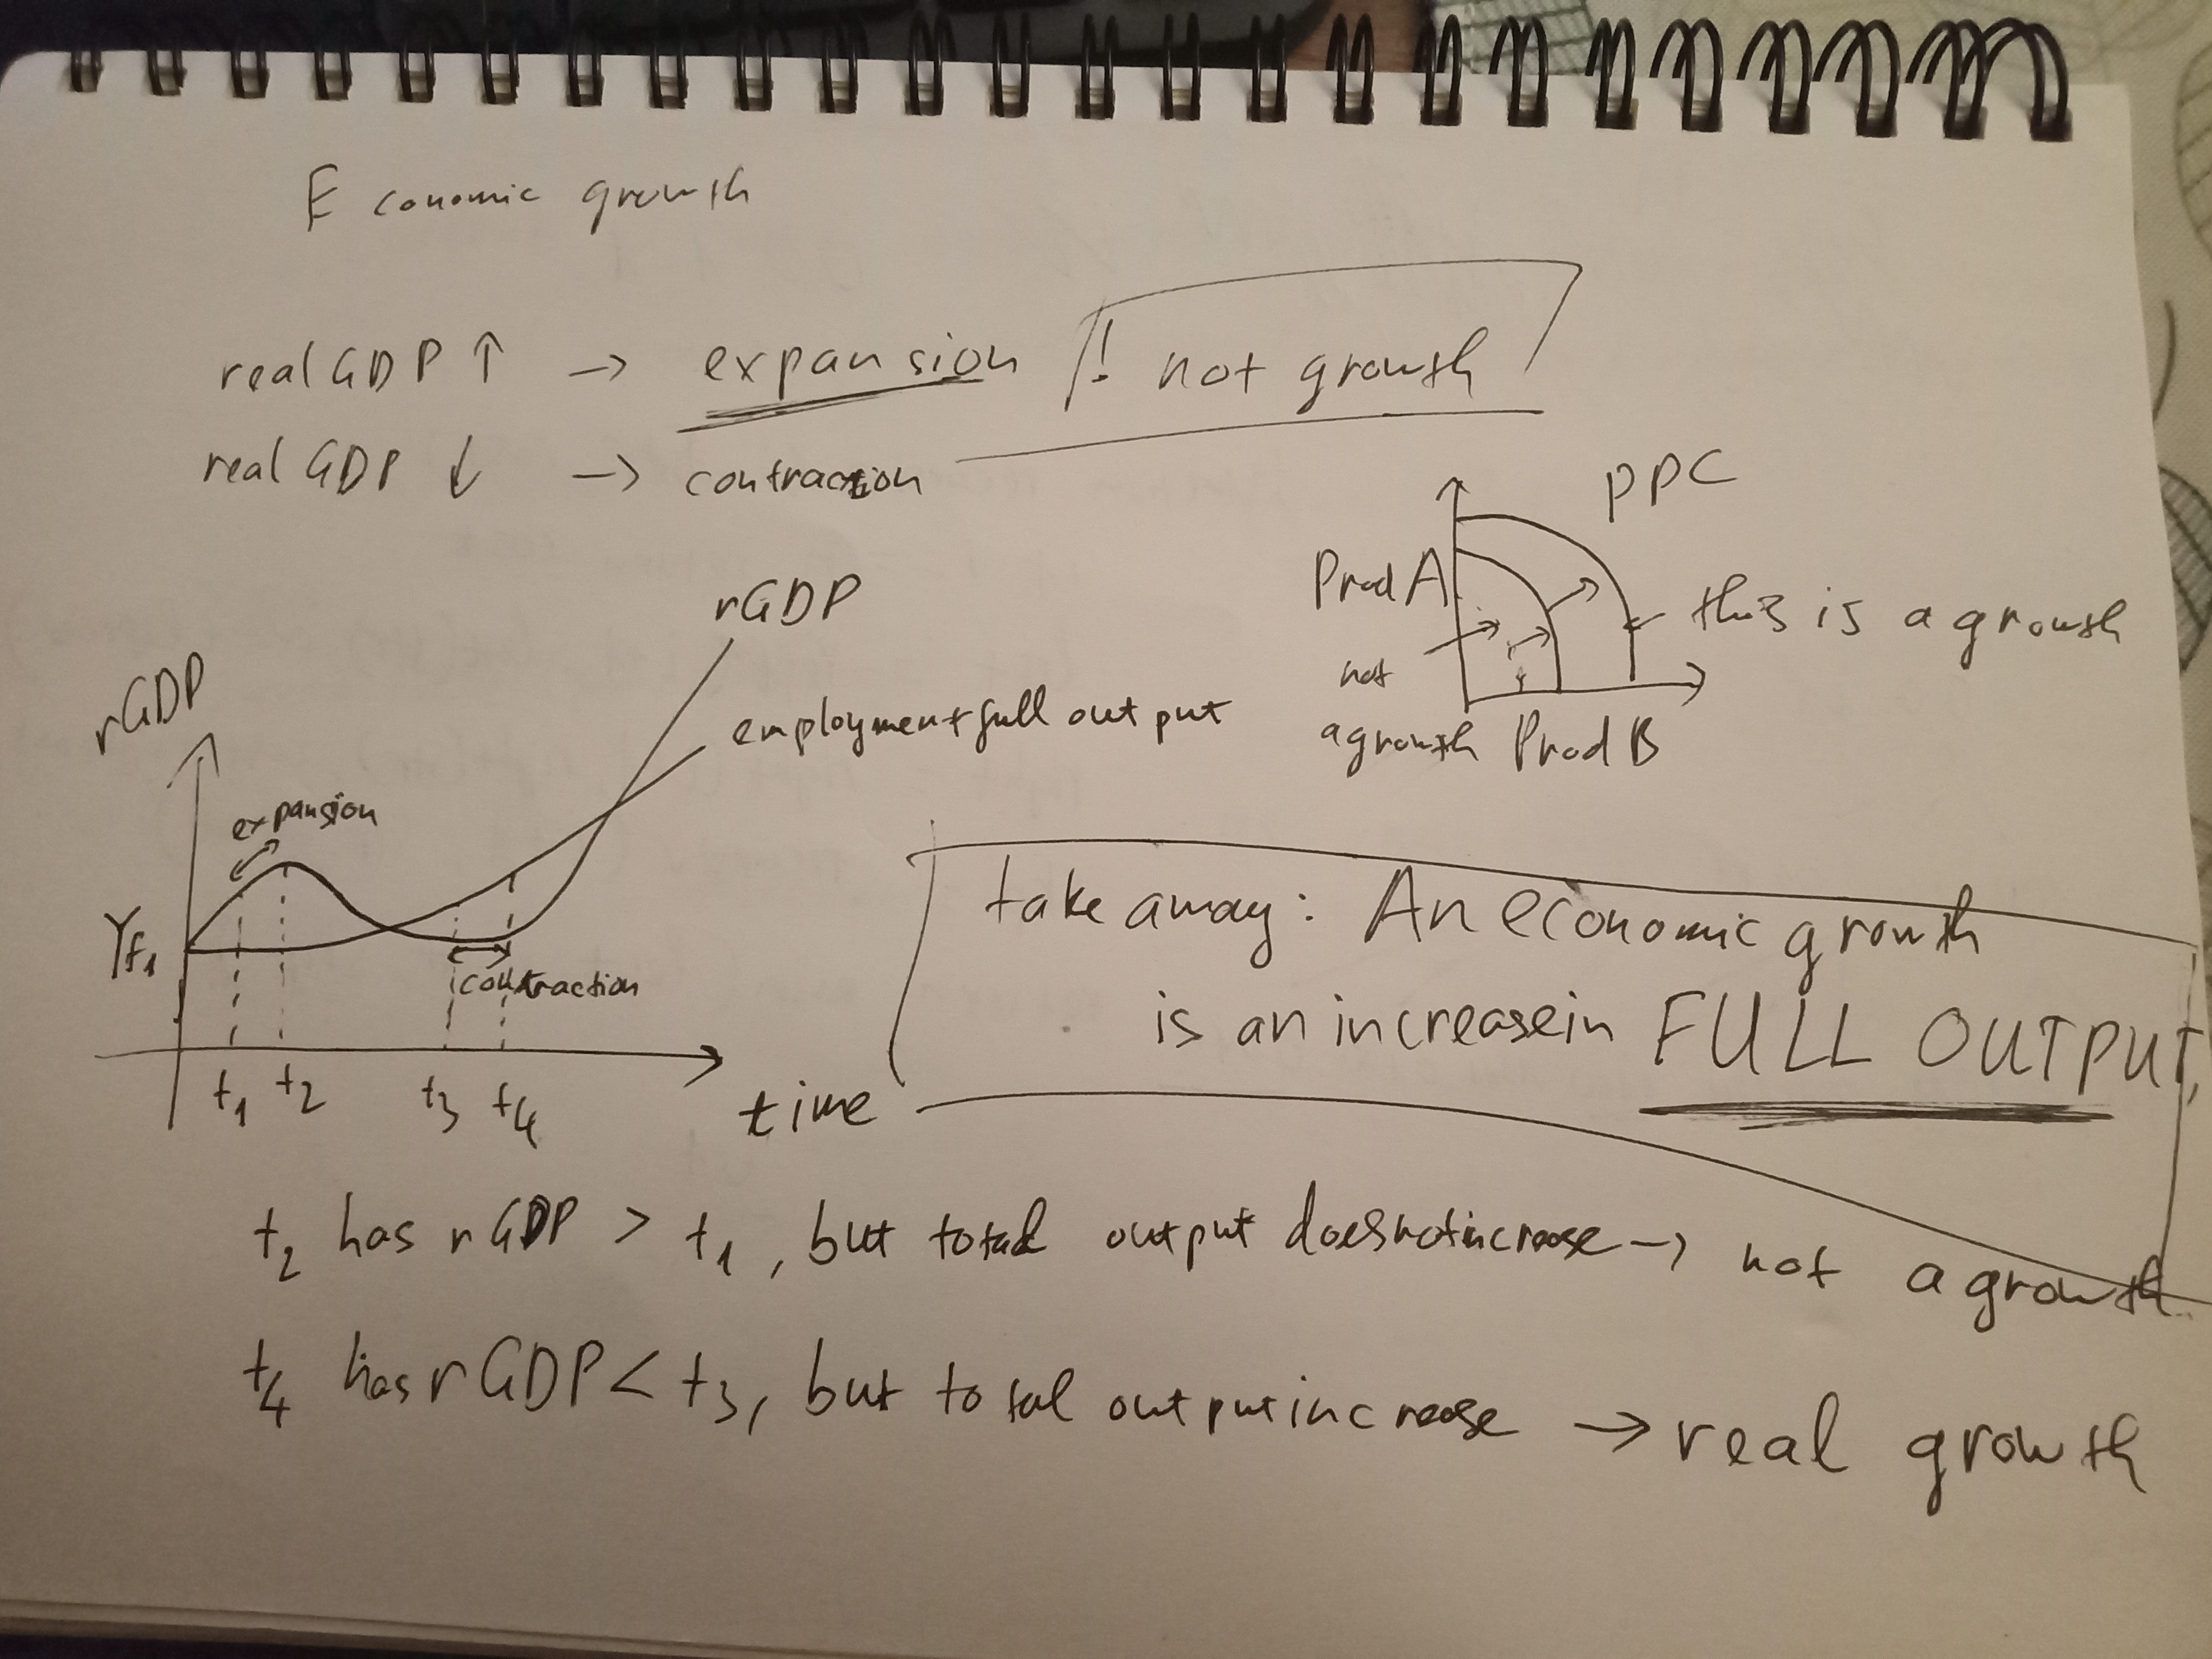 Economic growth
real GDP ↑ → expansion ! not growth
real GDP ↓ → contraction
PPC
Prod A
this is a growth
not
a growth
Prod B
rGDP
rGDP
employment full output
expansion
Yf1
contraction
t1 t2 t3 t4
time
take away: An economic growth
is an increase in FULL OUTPUT,
t2 has rGDP > t1, but total output does not increase → not a growth
t4 has rGDP < t3, but total output increase → real growth